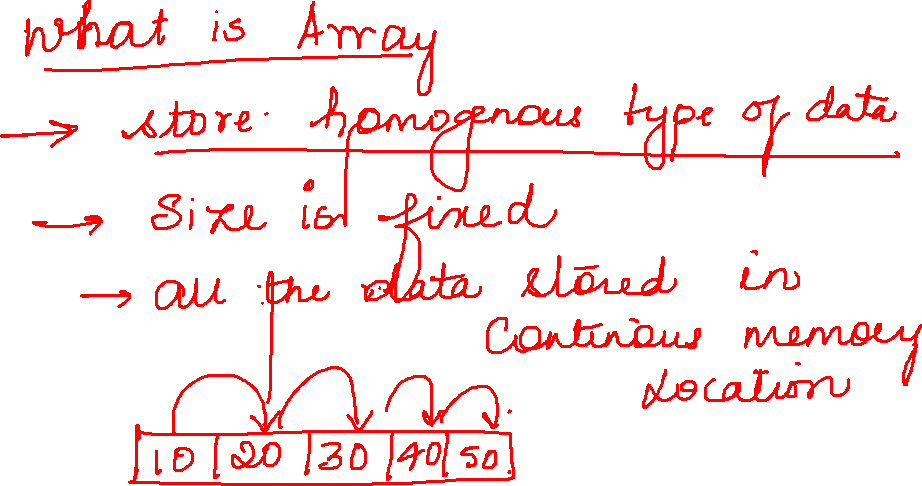 What is Array
→ store homogenous type of data
→ Size is fixed
→ all the data stored in
Continous memory
Location
10 | 20 | 30 | 40 | 50